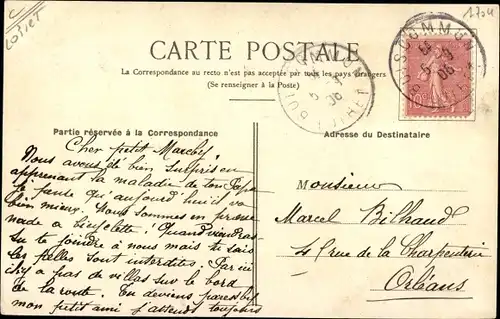 Loiret
1704
CARTE POSTALE
La Correspondance au recto n'est pas acceptée par tous les pays étrangers
(Se renseigner à la Poste)
Partie réservée à la Correspondance
Adresse du Destinataire
Cher petit Marcel,
Nous avons été bien surpris en
apprenant la maladie de ton Papa
qui aujourd'hui va
bien mieux. Nous sommes en prome
nade à bicyclette! Quand viendras-
tu te joindre à nous mais tu sais
les pelles sont interdites. Par ici
il n'y a pas de villas sur le bord
de la route. Tu deviens
mon petit ami j'attends toujours
Monsieur
Marcel Bilhaud
4 rue de la Charpenterie
Orléans